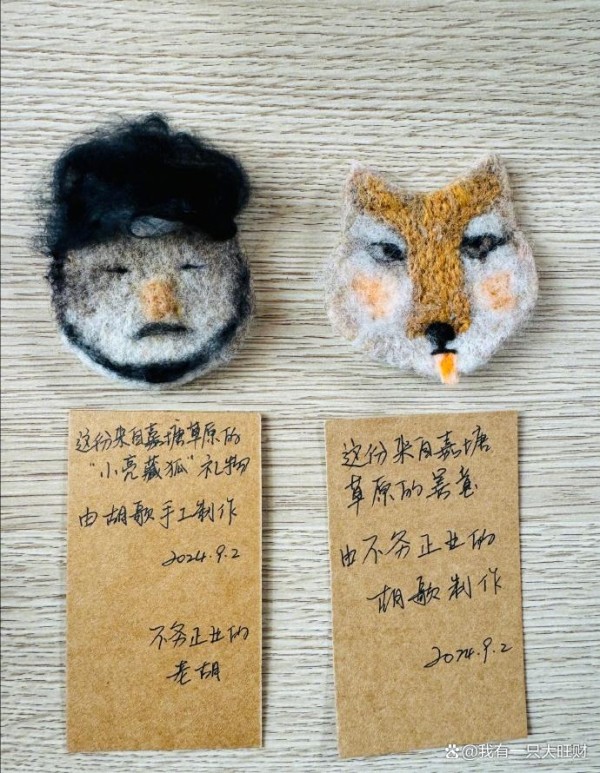 这份来自嘉塘草原的
“小亮藏狐”礼物
由胡歌手工制作
2024.9.2
不务正业的
老胡
这份来自嘉塘
草原的善意
由不务正业的
胡歌制作
2024.9.2
@我有一只大旺财